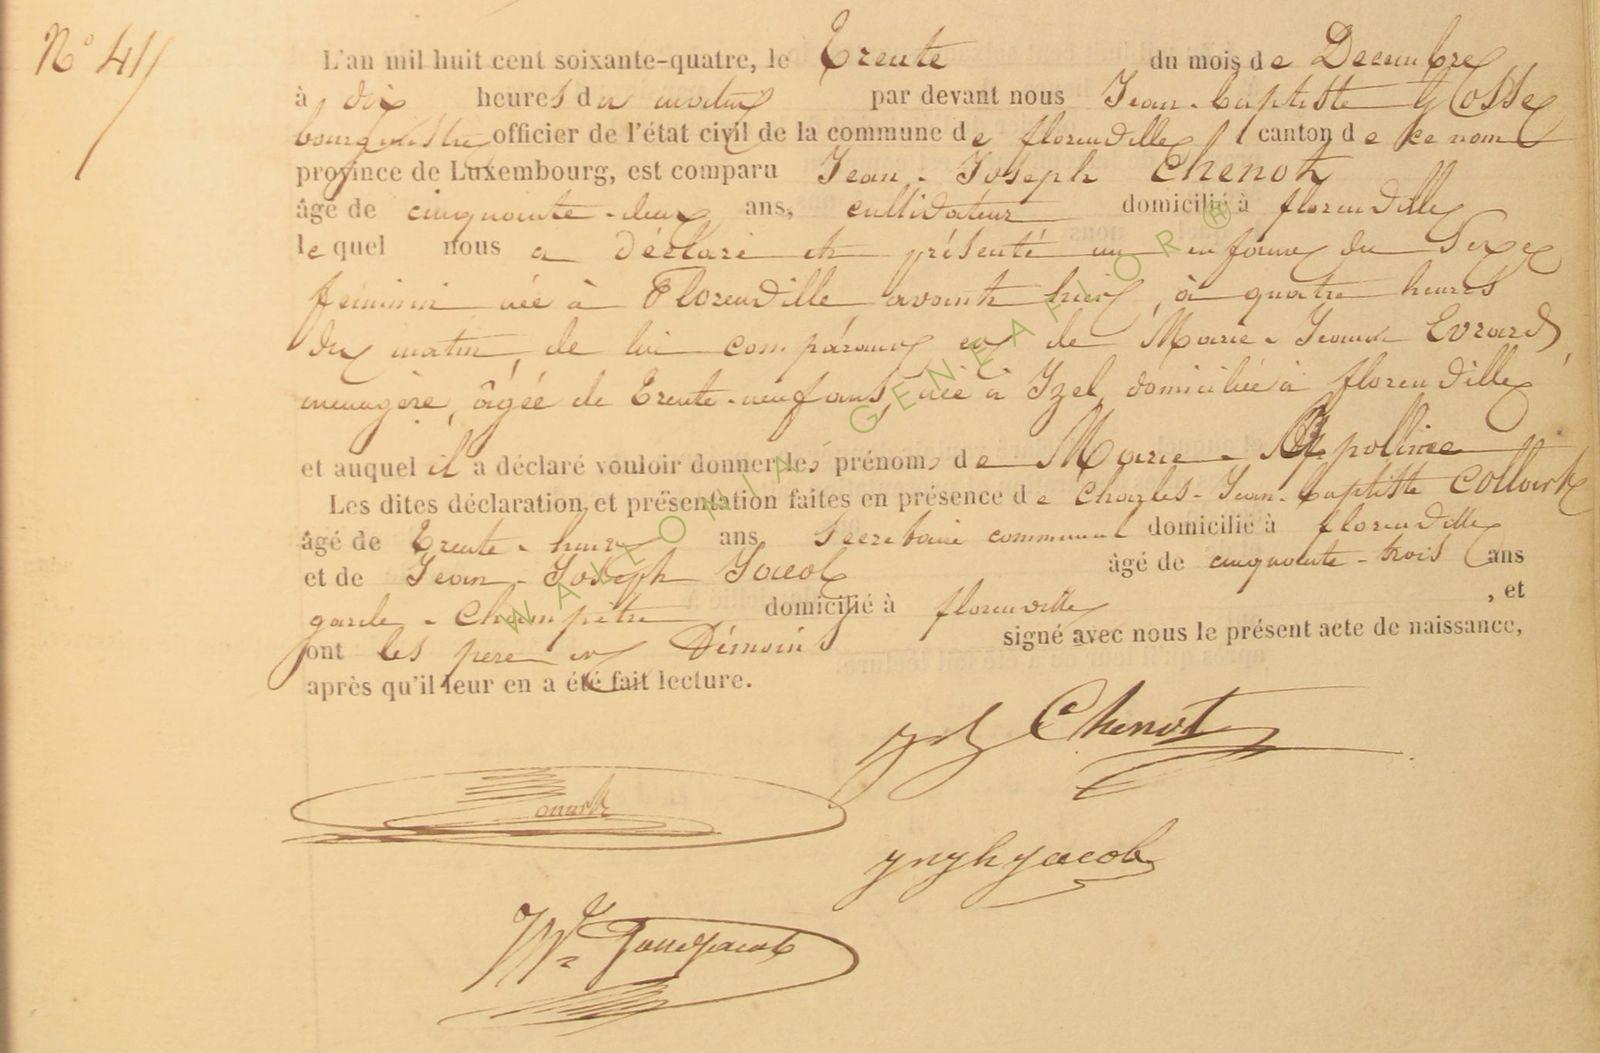 N° 41
L'an mil huit cent soixante-quatre, le Trente du mois de Décembre
à dix heures du matin par devant nous Jean-Baptiste Glosse
bourgmestre officier de l'état civil de la commune de florenville canton de ce nom
province de Luxembourg, est comparu Jean-Joseph Chenot
âgé de cinquante-deux ans, cultivateur domicilié à florenville
lequel nous a déclaré et présenté un enfant du Sexe
féminin née à Florenville avant hier, à quatre heures
du matin, de lui comparant et de Marie-Jeanne Evrard,
ménagère, âgée de Trente-neuf ans, née à Izel, domiciliée à florenville
et auquel il a déclaré vouloir donner les prénoms de Marie-Appoline
Les dites déclaration et présentation faites en présence de Charles-Jean-Baptiste Collart
âgé de Trente-huit ans Secrétaire communal domicilié à florenville
et de Jean-Joseph Jacob âgé de cinquante-trois ans
garde-Champêtre domicilié à florenville, et
ont les père et Témoins signé avec nous le présent acte de naissance,
après qu'il leur en a été fait lecture.
Chenot
Jacob
WALLONIA-GENEAFLOR®